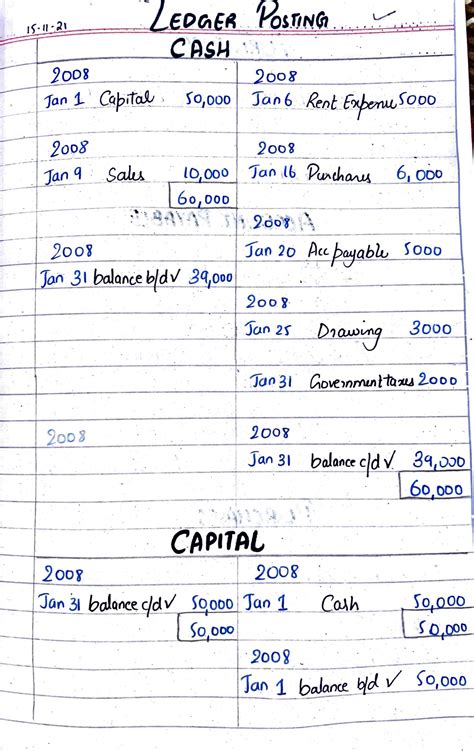 15-11-21
LEDGER POSTING
CASH
2008 2008
Jan 1 Capital 50,000 Jan 6 Rent Expense 5000
2008 2008
Jan 9 Sales 10,000 Jan 16 Purchases 6,000
60,000
2008
2008 Jan 20 Acc payable 5000
Jan 31 balance b/d ✓ 39,000
2008
Jan 25 Drawing 3000
Jan 31 Government taxes 2000
2008 2008
Jan 31 balance c/d ✓ 39,000
60,000
CAPITAL
2008 2008
Jan 31 balance c/d ✓ 50,000 Jan 1 Cash 50,000
50,000 50,000
2008
Jan 1 balance b/d ✓ 50,000